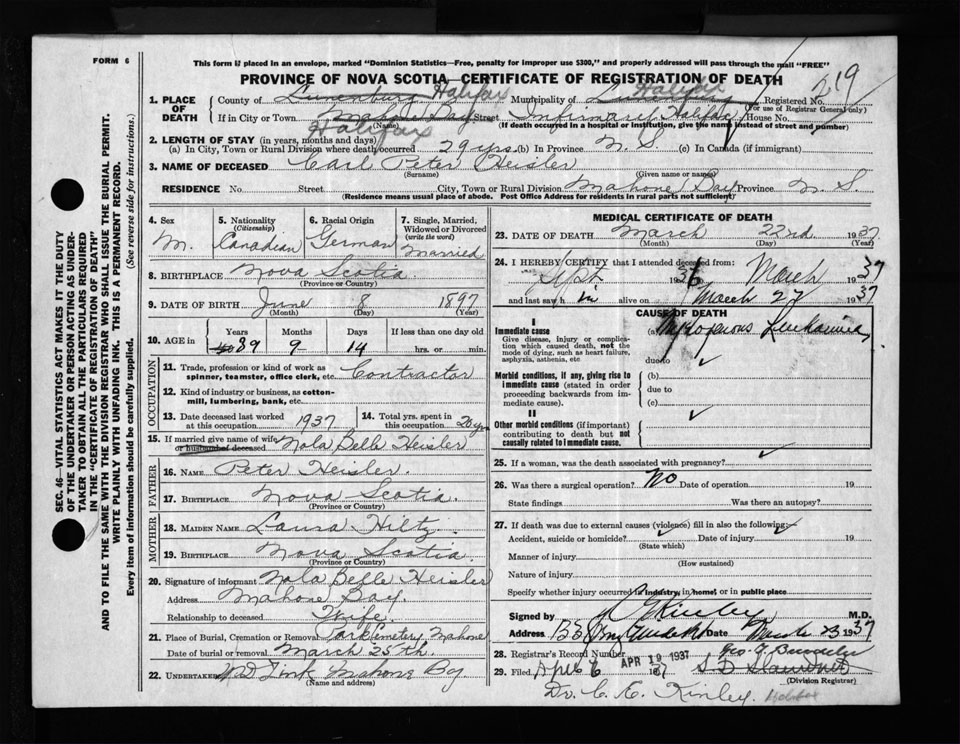 FORM 6
This form if placed in an envelope, marked "Dominion Statistics—Free, penalty for improper use $300," and properly addressed will pass through the mail "FREE"
PROVINCE OF NOVA SCOTIA—CERTIFICATE OF REGISTRATION OF DEATH
219
1. PLACE OF DEATH County of Lunenburg Halifax Municipality of Halifax Registered No.
(For use of Registrar General only)
If in City or Town Mahone Bay Street Infirmary Halifax House No.
(Name) (If death occurred in a hospital or institution, give the name instead of street and number)
Halifax
2. LENGTH OF STAY (in years, months and days)
(a) In City, Town or Rural Division where death occurred 29 yrs. (b) In Province N. S. (c) In Canada (if immigrant)
3. NAME OF DECEASED Carl Peter Heisler
(Surname) (Given name or names)
RESIDENCE No. Street City, Town or Rural Division Mahone Bay Province N. S.
(Residence means usual place of abode. Post Office Address for residents in rural parts not sufficient)
SEC. 46—VITAL STATISTICS ACT MAKES IT THE DUTY
OF THE UNDERTAKER OR PERSON ACTING AS UNDER-
TAKER TO OBTAIN ALL THE PARTICULARS REQUIRED
IN THE "CERTIFICATE OF REGISTRATION OF DEATH"
AND TO FILE THE SAME WITH THE DIVISION REGISTRAR WHO SHALL ISSUE THE BURIAL PERMIT.
WRITE PLAINLY WITH UNFADING INK. THIS IS A PERMANENT RECORD.
Every item of information should be carefully supplied. (See reverse side for instructions.)
4. Sex M.
5. Nationality (Citizenship) Canadian
6. Racial Origin German
7. Single, Married, Widowed or Divorced (write the word) Married
8. BIRTHPLACE Nova Scotia
(Province or Country)
9. DATE OF BIRTH June 8 1897
(Month) (Day) (Year)
10. AGE in Years Months Days If less than one day old
40 39 9 14 hrs. or min.
OCCUPATION
11. Trade, profession or kind of work as spinner, teamster, office clerk, etc. Contractor
12. Kind of industry or business, as cotton-mill, lumbering, bank, etc.
13. Date deceased last worked at this occupation 1937
14. Total yrs. spent in this occupation 20 yrs
15. If married give name of wife or husband of deceased Nola Belle Heisler
FATHER
16. NAME Peter Heisler.
17. BIRTHPLACE Nova Scotia.
(Province or Country)
MOTHER
18. MAIDEN NAME Laura Hiltz.
19. BIRTHPLACE Nova Scotia.
(Province or Country)
20. Signature of informant Nola Belle Heisler
Address Mahone Bay.
Relationship to deceased Wife.
21. Place of Burial, Cremation or Removal Park Cemetery Mahone
Date of burial or removal March 25th.
22. UNDERTAKER Zink Mahone Bay
(Name and address)
MEDICAL CERTIFICATE OF DEATH
23. DATE OF DEATH March 22nd 1937
(Month) (Day) (Year)
24. I HEREBY CERTIFY that I attended deceased from:
Sept. 1936 March 1937
and last saw h im alive on March 22 1937
CAUSE OF DEATH
I
Immediate cause
Give disease, injury or complication which caused death, not the mode of dying, such as heart failure, asphyxia, asthenia, etc
(a) Leukaemia
due to
Morbid conditions, if any, giving rise to immediate cause (stated in order proceeding backwards from immediate cause).
(b)
due to
(c)
II
Other morbid conditions (if important) contributing to death but not causally related to immediate cause.
25. If a woman, was the death associated with pregnancy?
26. Was there a surgical operation? No Date of operation 19
State findings Was there an autopsy?
27. If death was due to external causes (violence) fill in also the following:—
Accident, suicide or homicide? Date of injury 19
(State which)
Manner of injury
(How sustained)
Nature of injury
Specify whether injury occurred in industry, in home, or in public place
Signed by Kinley M.D.
Address Date March 23 1937
28. Registrar's Record Number
29. Filed April 6 APR 19 1937 1937
(Division Registrar)
Dr. C. E. Kinley. Halifax